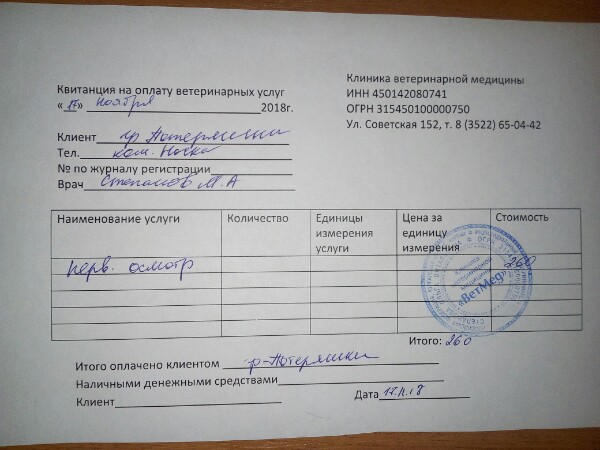 Квитанция на оплату ветеринарных услуг
« 17 » ноября 2018г.
Клиника ветеринарной медицины
ИНН 450142080741
ОГРН 315450100000750
Ул. Советская 152, т. 8 (3522) 65-04-42
Клиент гр Потеряшки
Тел. кот. Носка
№ по журналу регистрации
Врач Степанов М.А
Наименование услуги Количество Единицы измерения услуги Цена за единицу измерения Стоимость
перв. осмотр 260
клиника ветеринарной медицины «ВетМед»
Итого: 260
Итого оплачено клиентом гр-Потеряшки
Наличными денежными средствами
Клиент Дата 17.11.18